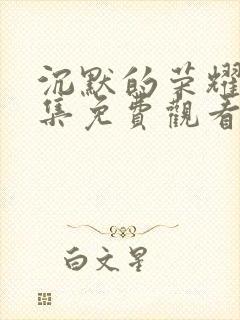 沉默的荣耀
集免費觀看
白文星